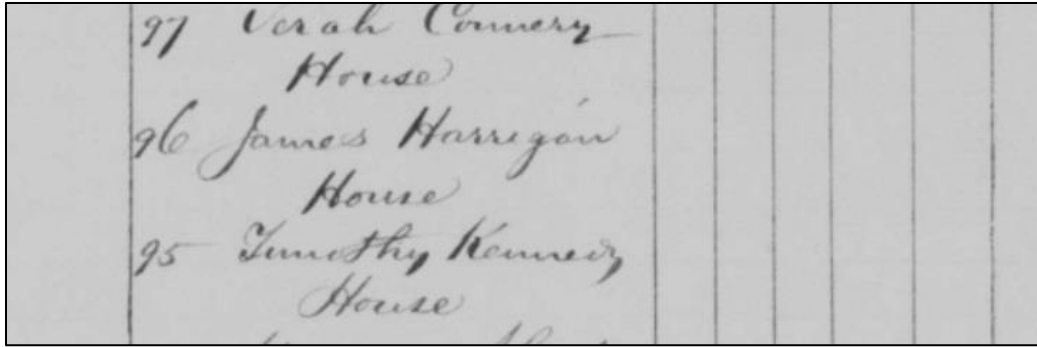 97 Connery
House
96 James Harrigan
House
95 Timothy Kennedy
House